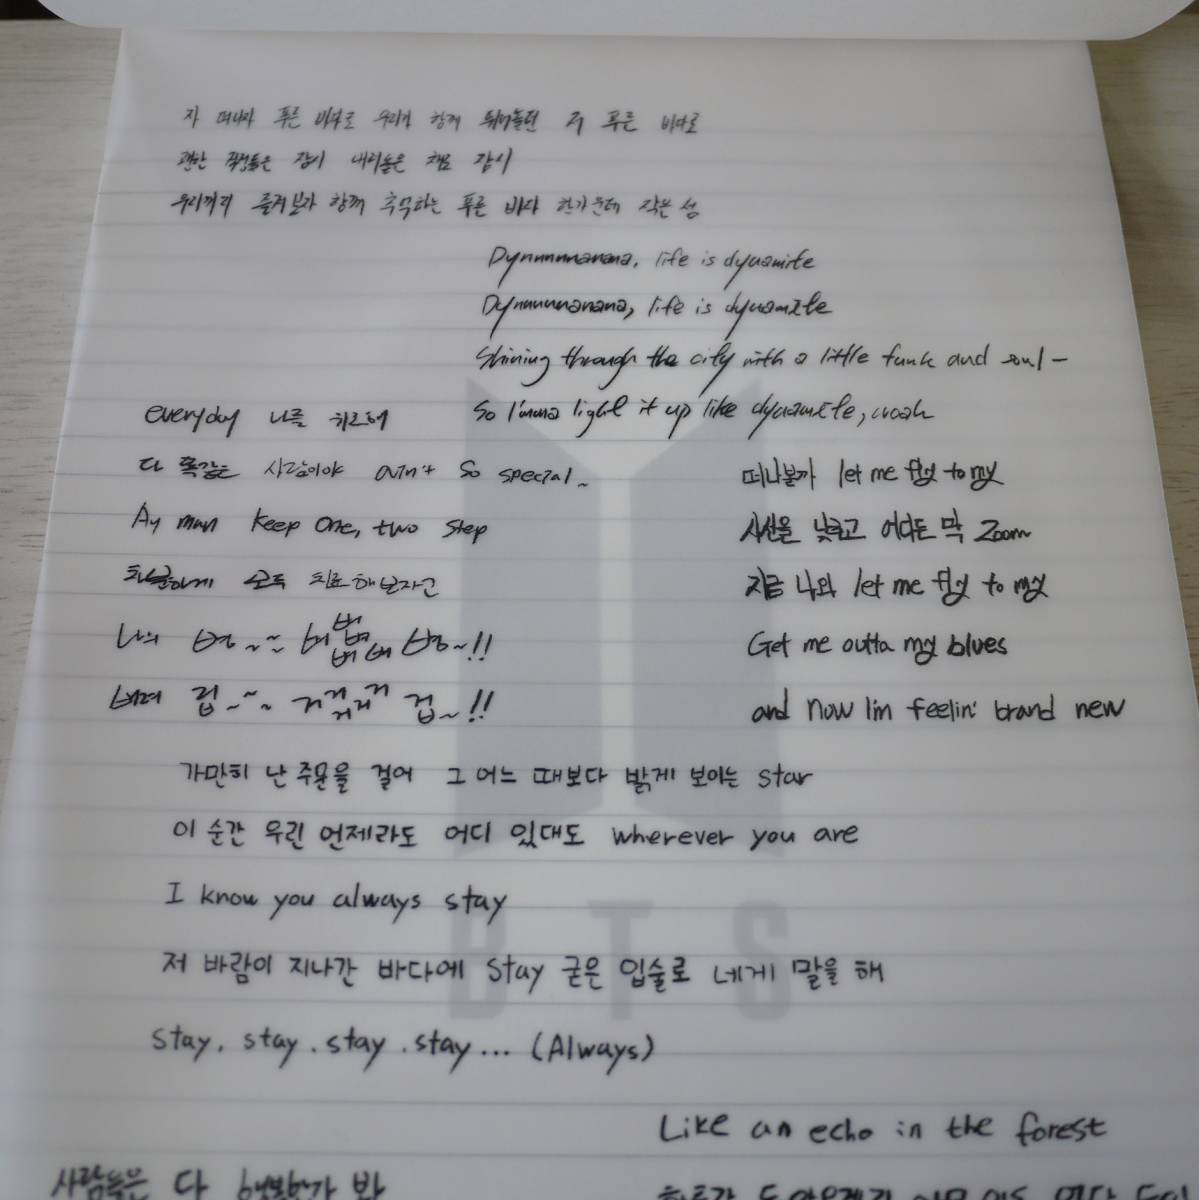 자 떠나자 푸른 바다로 우리가 함께 뛰어놀던 저 푸른 바다로
괜한 걱정들은 잠시 내려놓은 채로 잠시
우리끼리 즐겨보자 함께 추억하는 푸른 바다 한가운데 작은 섬
Dynnnnnanana, life is dynamite
Dynnnnnanana, life is dynamite
Shining through the city with a little funk and soul-
So I'mma light it up like dynamite, woah
everyday 나를 위로해
다 똑같은 사람이야 ain't so special~
Ay man keep one, two step
차분하게 모두 치료해보자고
나의 병~~~ 버버벼벼버버 병~!!
버려 겁~~~ 거거거거거거 겁~!!
떠나볼까 let me fly to my
시선을 낮추고 어디든 막 Zoom
지금 나와 let me fly to my
Get me outta my blues
and now I'm feelin' brand new
가만히 난 주문을 걸어 그 어느 때보다 밝게 보이는 star
이 순간 우린 언제라도 어디 있대도 wherever you are
I know you always stay
저 바람이 지나간 바다에 stay 굳은 입술로 네게 말을 해
stay, stay. stay. stay... (Always)
Like an echo in the forest
사람들은 다
BTS